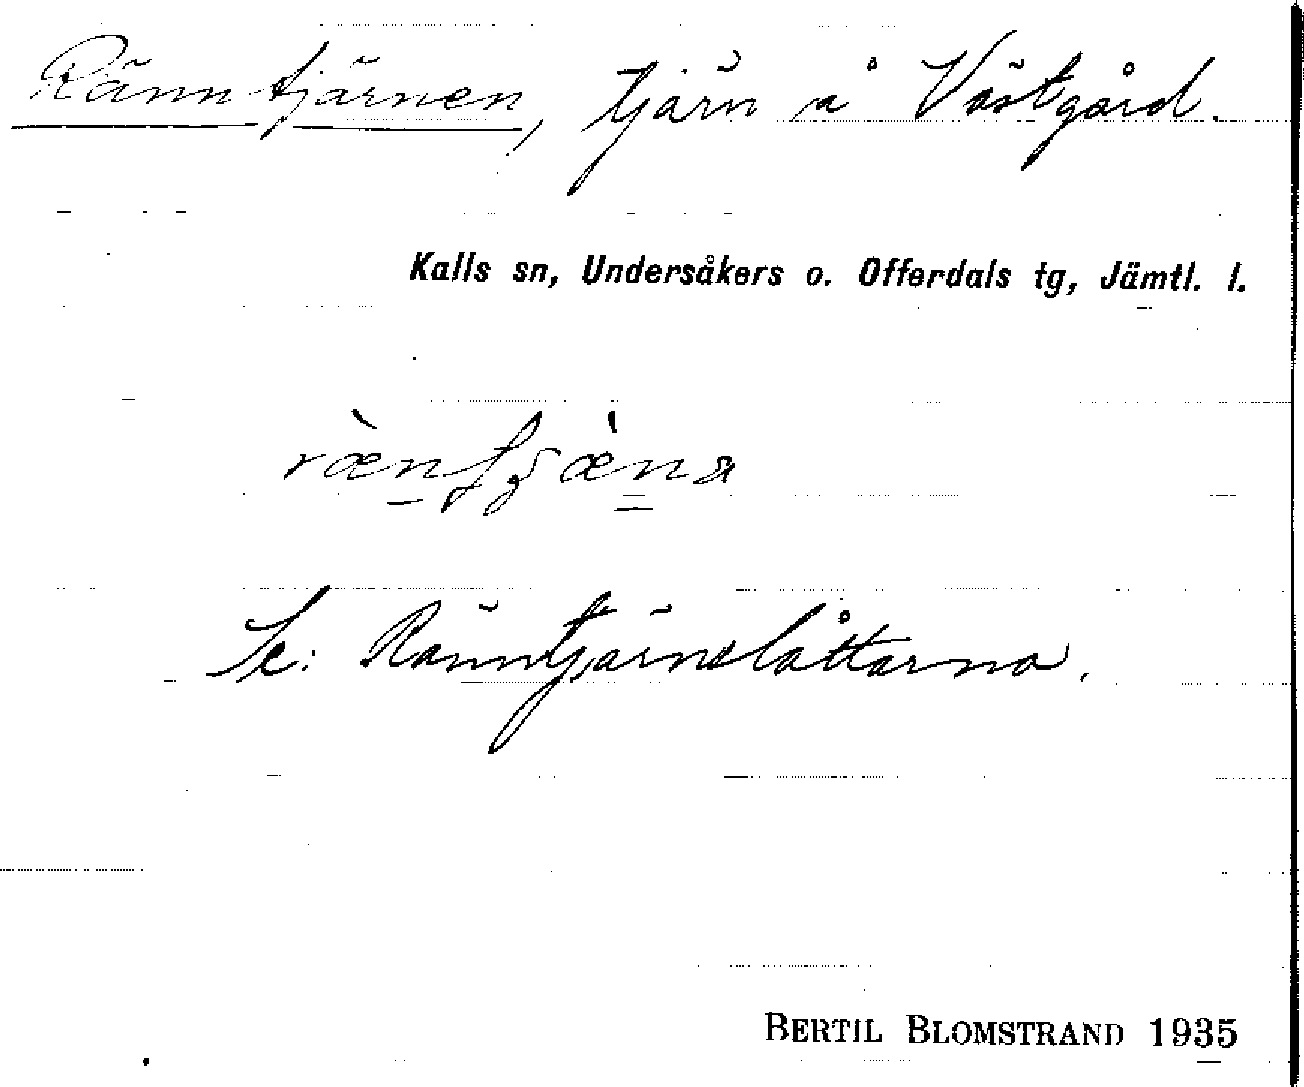 Ränntjärnen, tjärn å Västgård.
Kalls sn, Undersåkers o. Offerdals tg, Jämtl. l.
Se: Ränntjärnslåttarna.
BERTIL BLOMSTRAND 1935